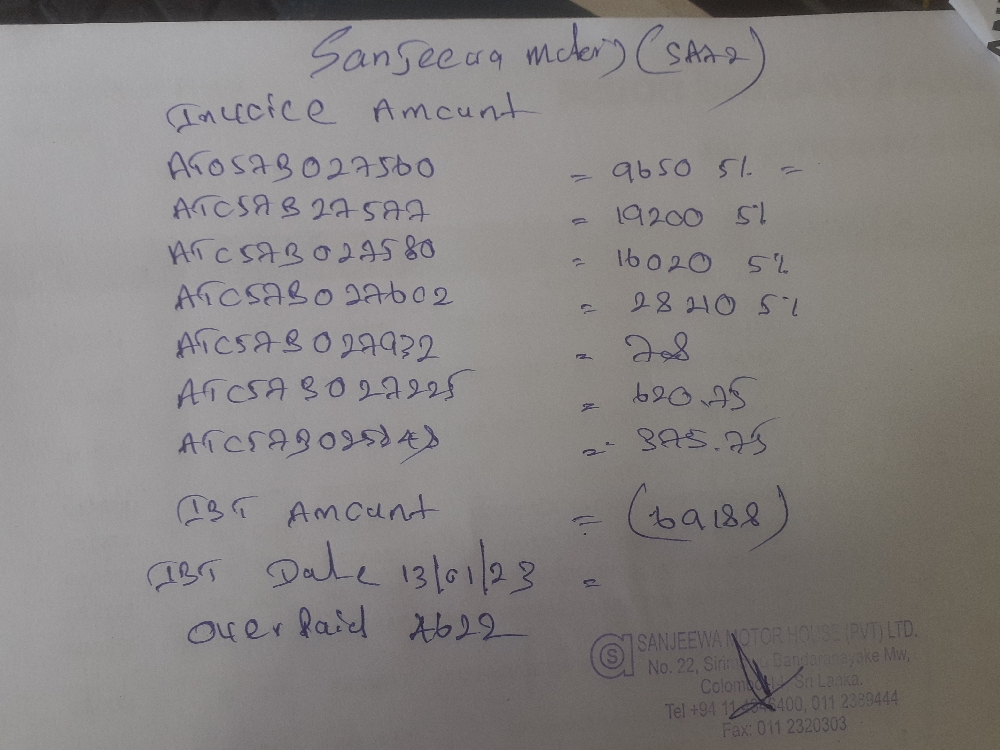 Sanjeewa motors (SA72)
Invoice Amount
ATO573027560 = 9650 5% =
ATC57327577 = 19200 5%
ATC573027580 = 16020 5%
ATC573027602 = 28210 5%
ATC573027932 = 78
ATC573027225 = 620.75
= 375.75
IBT Amount = (69188)
IBT Date 13/01/23 =
Over Paid
SANJEEWA MOTOR HOUSE (PVT) LTD.
No. 22, Bandaranayake Mw,
Sri Lanka.
Tel +94 11 400, 011 2389444
Fax: 011 2320303